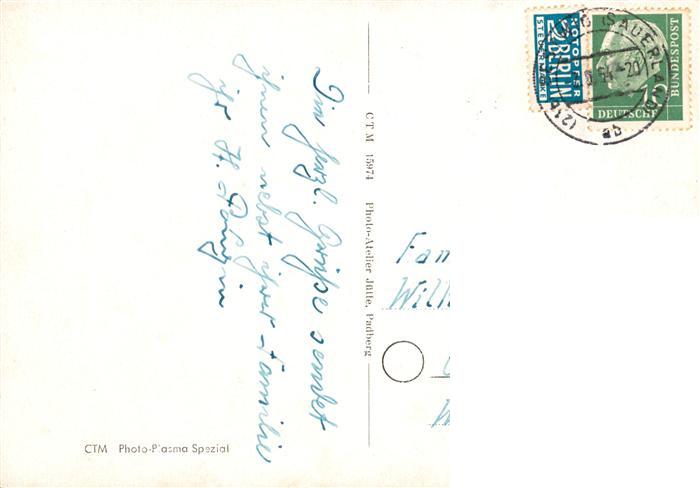 NOTOPFER
2 BERLIN
STEUERMARKE
DEUTSCHE
BUNDESPOST
10
(SAUERLAND)
(21b)
-20
herzl. Grüße sendet
ihnen nebst ihrer Familie
ihr H.
CTM 15974 Photo-Atelier Jütte, Padberg
Fam
Wilh
CTM Photo-Plasma Spezial